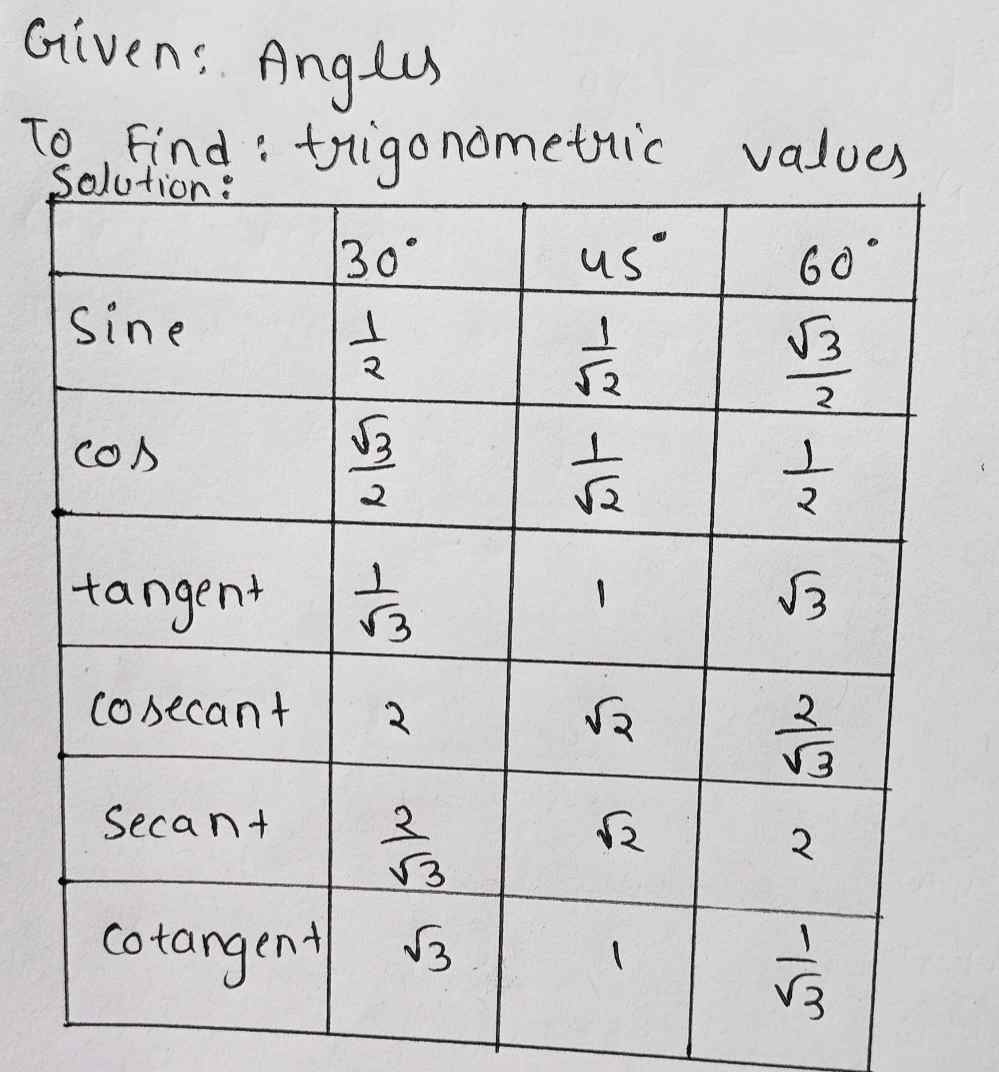 Given: Angles
To Find: trigonometric values
Solution:
30° 45° 60°
Sine 1/2 1/√2 √3/2
cos √3/2 1/√2 1/2
tangent 1/√3 1 √3
cosecant 2 √2 2/√3
Secant 2/√3 √2 2
Cotangent √3 1 1/√3